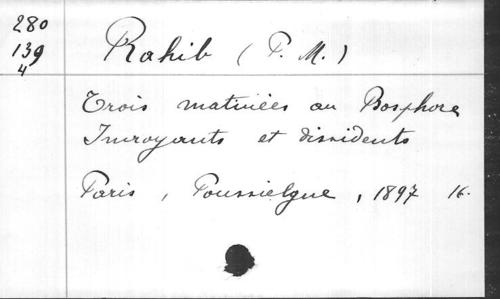 280
139
4
Rahib (P. M.)
Trois matinées au Bosphore
Incroyants et dissidents
Paris, Poussielgue, 1897 16.